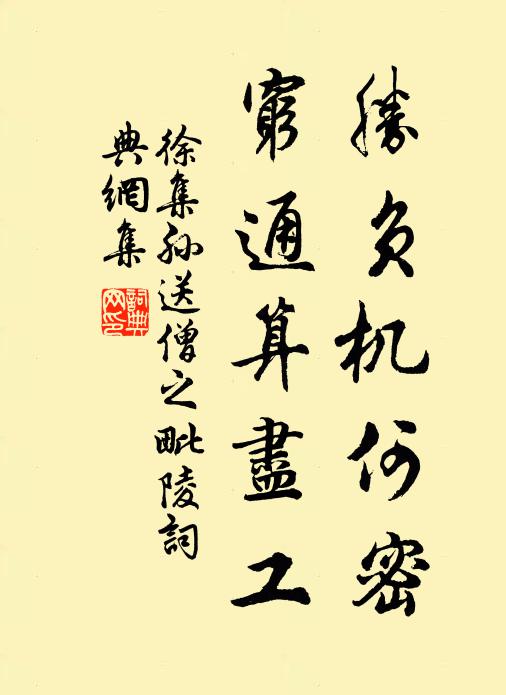 勝負机何密
窮通算盡工
徐集孫送僧之毗陵詞
典網集
詞典
网印